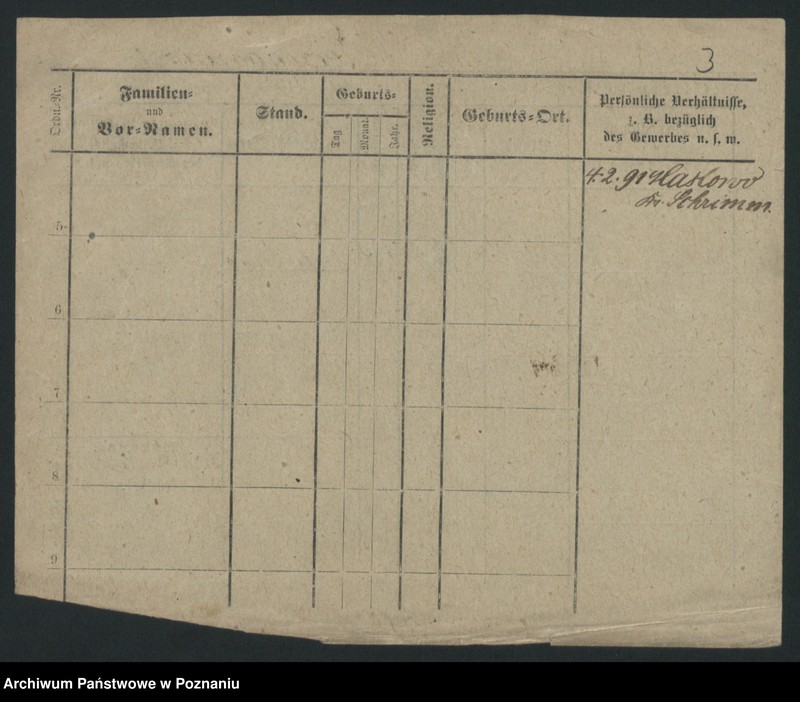 3
Ordn.-Nr.
Familien-
und
Vor-Namen.
Stand.
Geburts-
Tag
Monat.
Jahr.
Religion.
Geburts-Ort.
Persönliche Verhältnisse,
z. B. bezüglich
des Gewerbes u. s. w.
4. 2. 91
Kr. Schrimm.
5
6
7
8
9
Archiwum Państwowe w Poznaniu